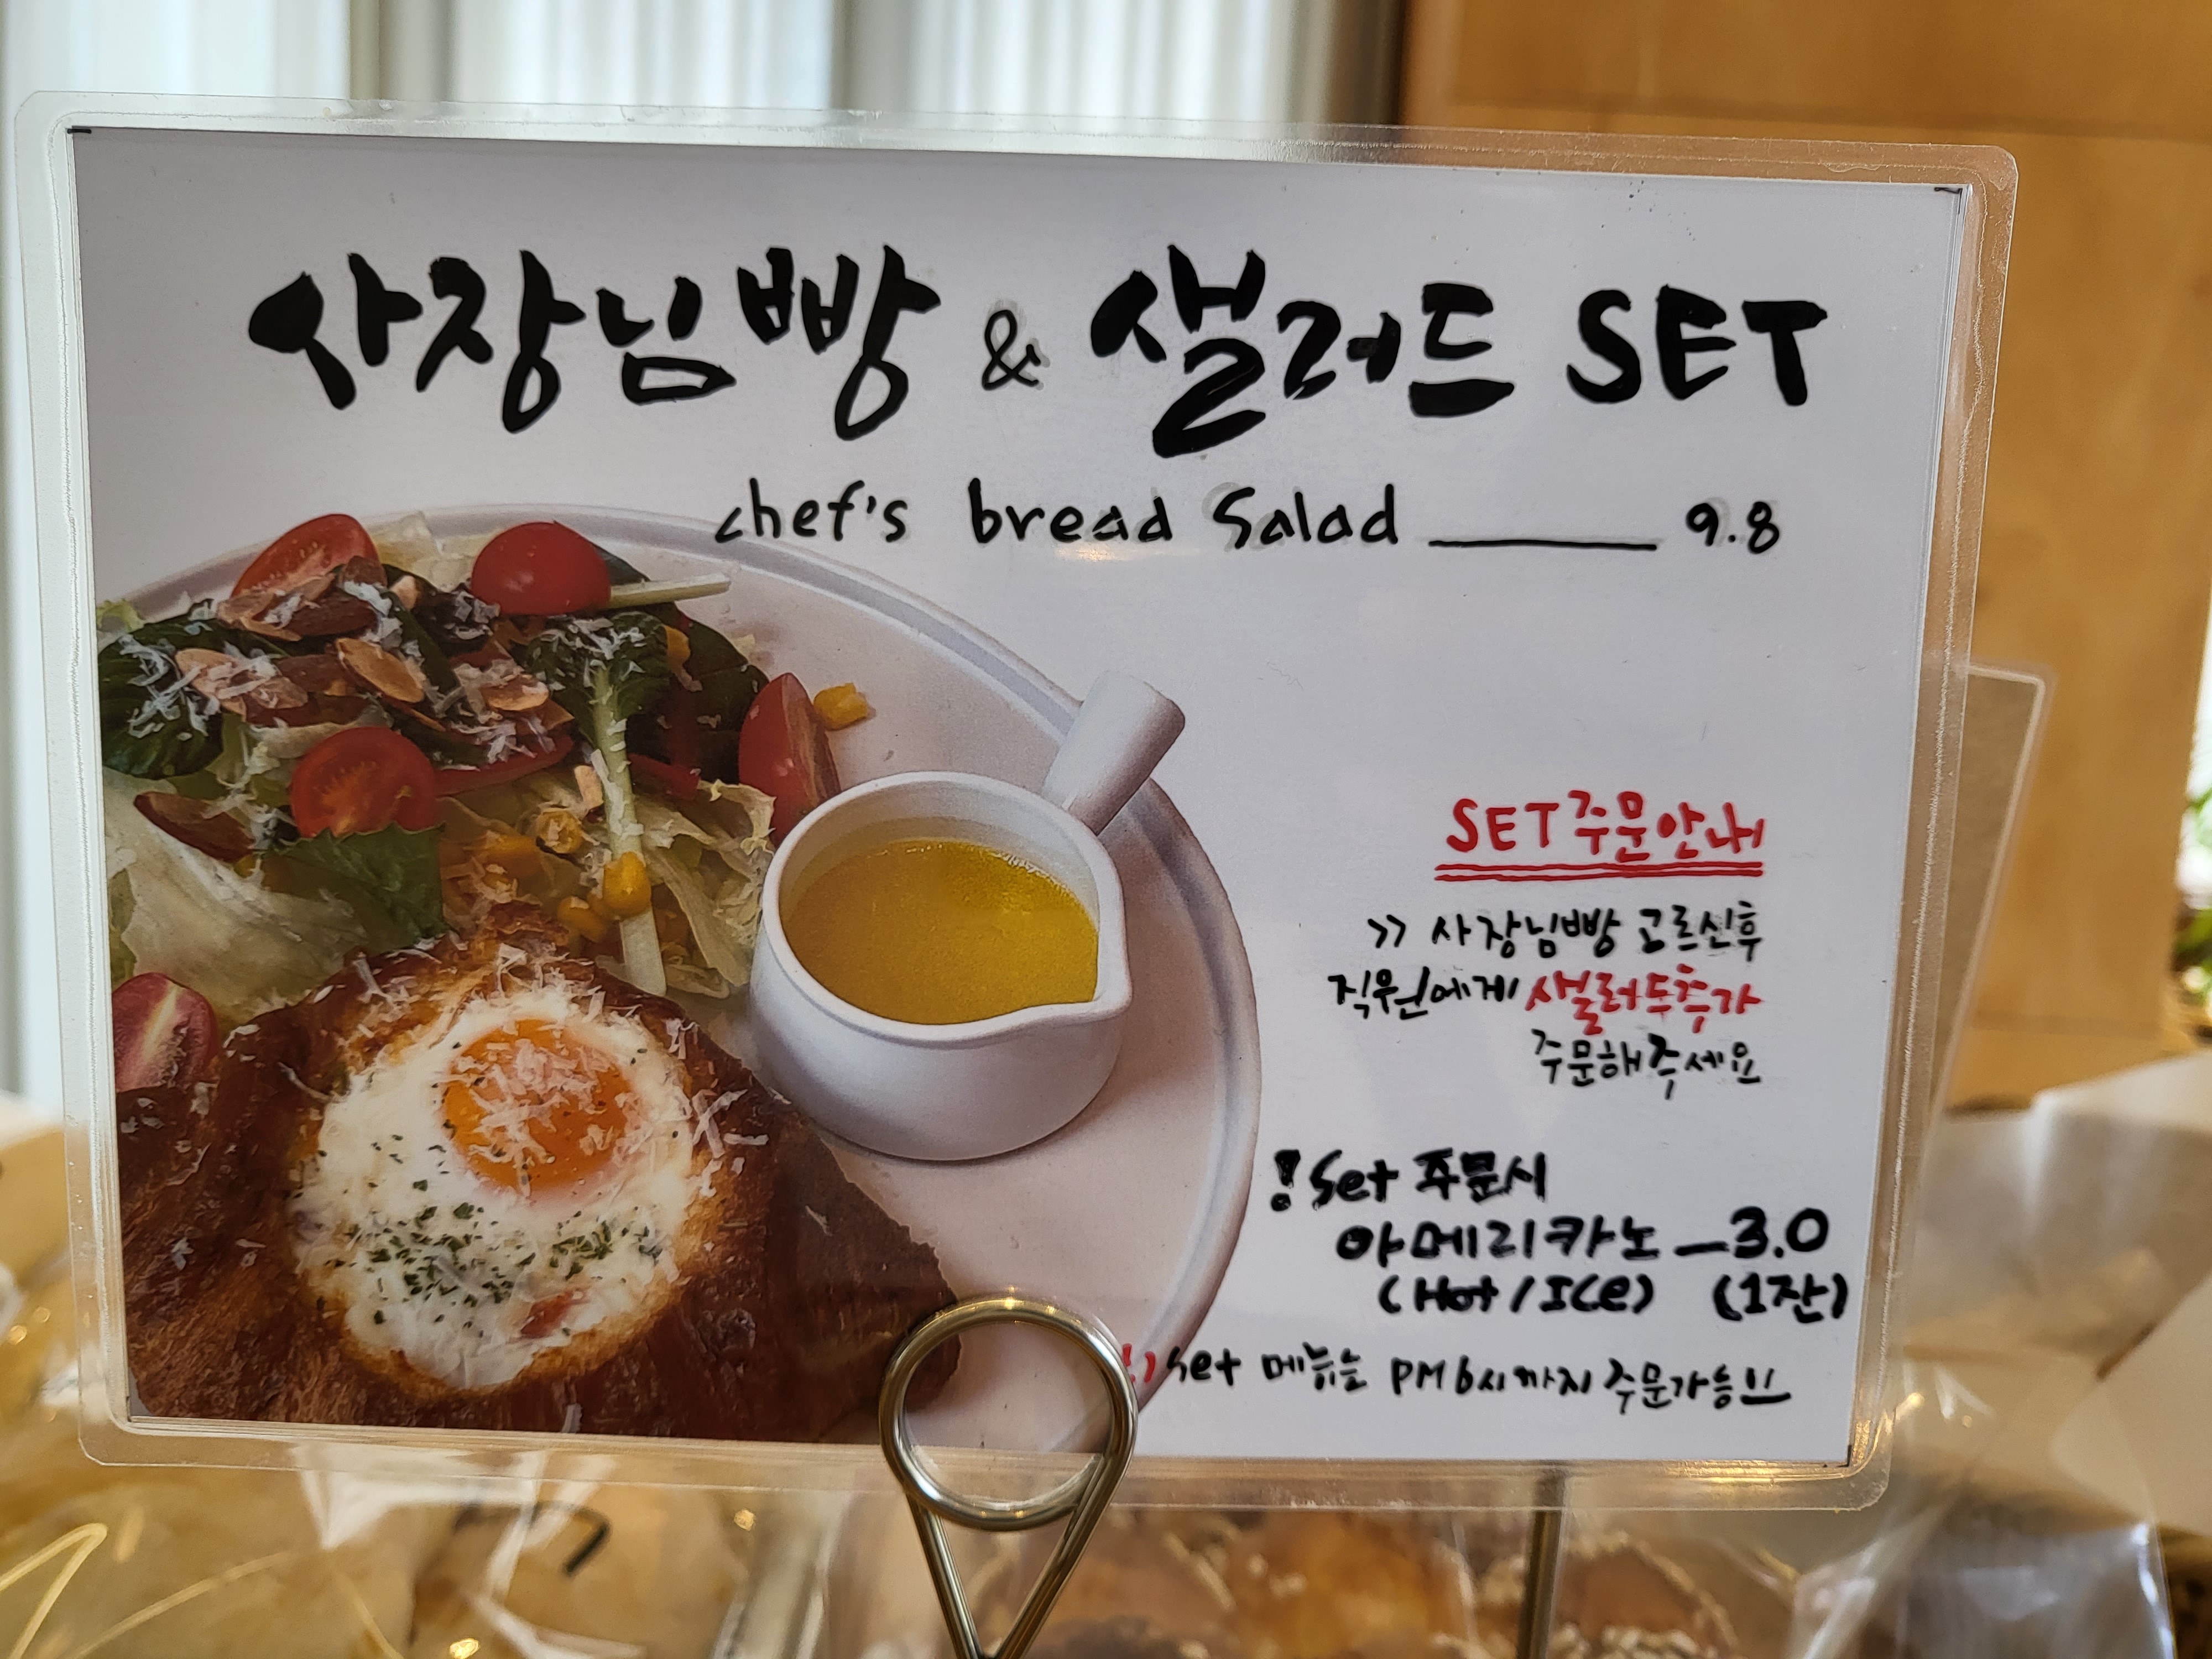 사장님빵 & 샐러드 SET
chef's bread Salad 9.8
SET 주문안내
>> 사장님빵 고르신후
직원에게 샐러드추가
주문해주세요
! Set 주문시
아메리카노 3.0
(Hot/ICe) (1잔)
!) Set 메뉴는 PM 6시까지 주문가능!!